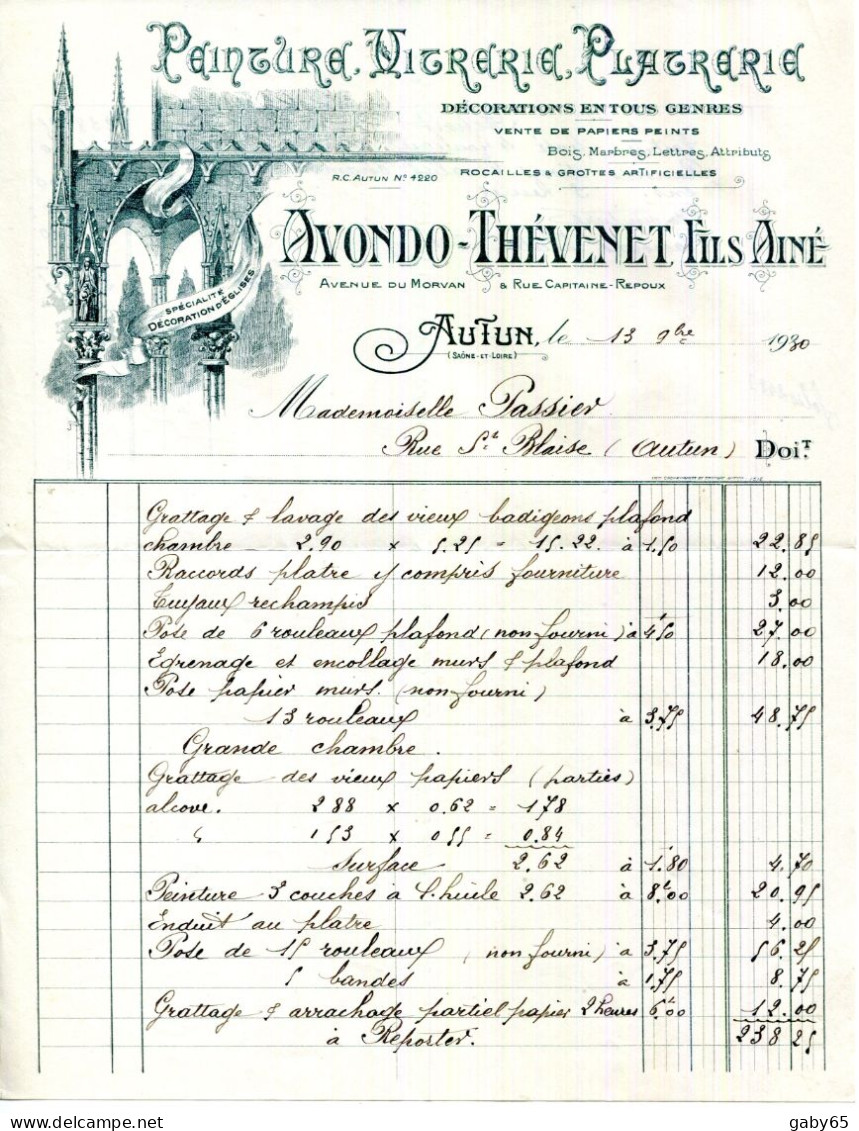 Peinture, Vitrerie, Platrerie
DÉCORATIONS EN TOUS GENRES
VENTE DE PAPIERS PEINTS
Bois, Marbres, Lettres, Attributs
ROCAILLES & GROTTES ARTIFICIELLES
R.C. AUTUN No 4220
AVONDO-THÉVENET, FILS AINÉ
AVENUE DU MORVAN & RUE CAPITAINE-REPOUX
SPÉCIALITÉ
DÉCORATION D'ÉGLISES
AUTUN, le 13 9bre 1930
(SAÔNE-ET-LOIRE)
Mademoiselle Passier
Rue St Blaise (Autun) DoiT.
Grattage & lavage des vieux badigeons plafond
chambre 2.90 x 5.25 = 15.22. à 1.50 22.85
Raccords platre y compris fourniture 12.00
Tuyaux rechampis 3.00
Pose de 6 rouleaux plafond (non fourni) à 4f50 27.00
Egrenage et encollage murs & plafond 18.00
Pose papier murs. (non fourni)
13 rouleaux à 3.75 48.75
Grande chambre.
Grattage des vieux papiers (parties)
alcove. 2.88 x 0.62 = 1.78
" 1.53 x 0.55 = 0.84
Surface 2.62 à 1.80 4.70
Peinture 3 couches à l'huile 2.62 à 8f00 20.95
Enduit au platre 4.00
Pose de 15 rouleaux (non fourni) à 3.75 56.25
5 bandes à 1.75 8.75
Grattage & arrachage partiel papier 2 heures 6f00 12.00
à Reporter. 238 25
delcampe.net
gaby65